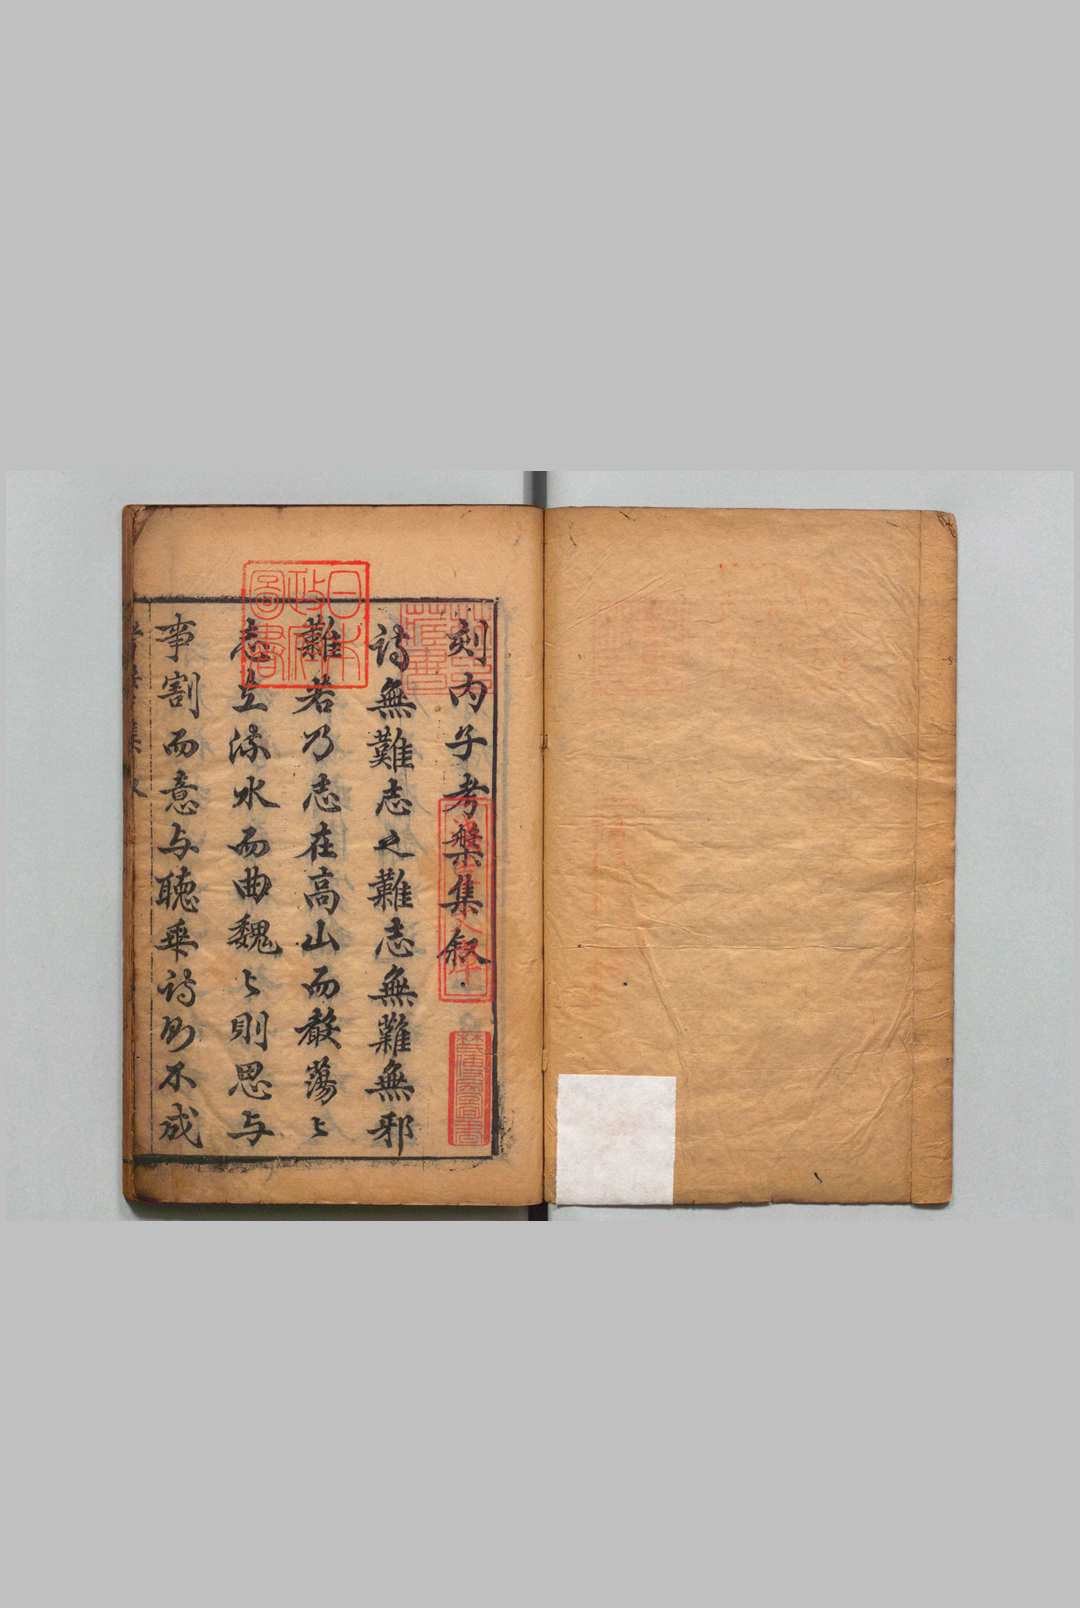 刻内子考槃集叙
詩無難志之難志無難無邪
難若乃志在高山而嚴蕩〻
志在流水而曲魏〻則思与
事割而意与聴乗詩則不成
日本政府圖書